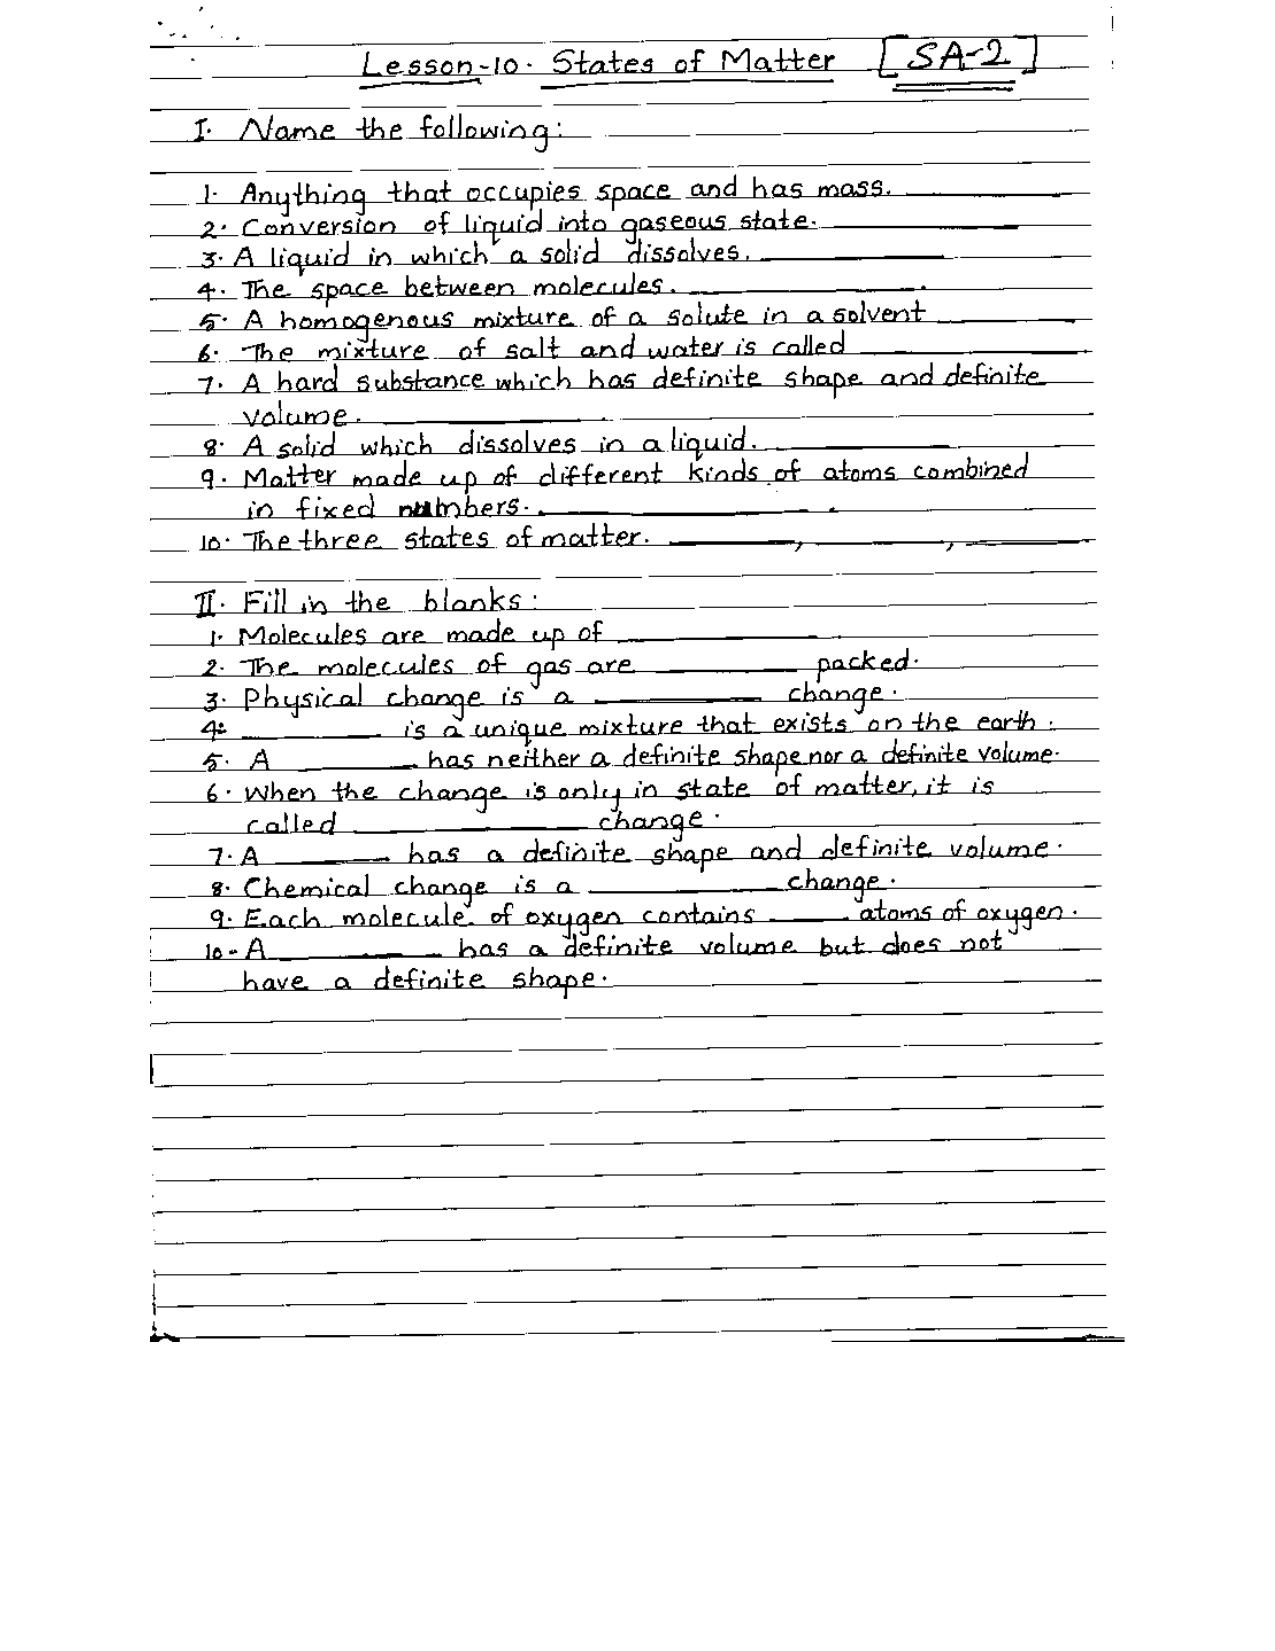 Lesson-10. States of Matter [SA-2]
I. Name the following:
1. Anything that occupies space and has mass. ________
2. Conversion of liquid into gaseous state. ________
3. A liquid in which a solid dissolves. ________
4. The space between molecules. ________.
5. A homogenous mixture of a solute in a solvent ________
6. The mixture of salt and water is called ________
7. A hard substance which has definite shape and definite
volume. ________.
8. A solid which dissolves in a liquid. ________
9. Matter made up of different kinds of atoms combined
in fixed numbers. ________.
10. The three states of matter. ________, ________, ________
II. Fill in the blanks:
1. Molecules are made up of ________.
2. The molecules of gas are ________ packed.
3. Physical change is a ________ change.
4. ________ is a unique mixture that exists on the earth.
5. A ________ has neither a definite shape nor a definite volume.
6. When the change is only in state of matter, it is
called ________ change.
7. A ________ has a definite shape and definite volume.
8. Chemical change is a ________ change.
9. Each molecule of oxygen contains ____ atoms of oxygen.
10. A ________ has a definite volume but does not
have a definite shape.